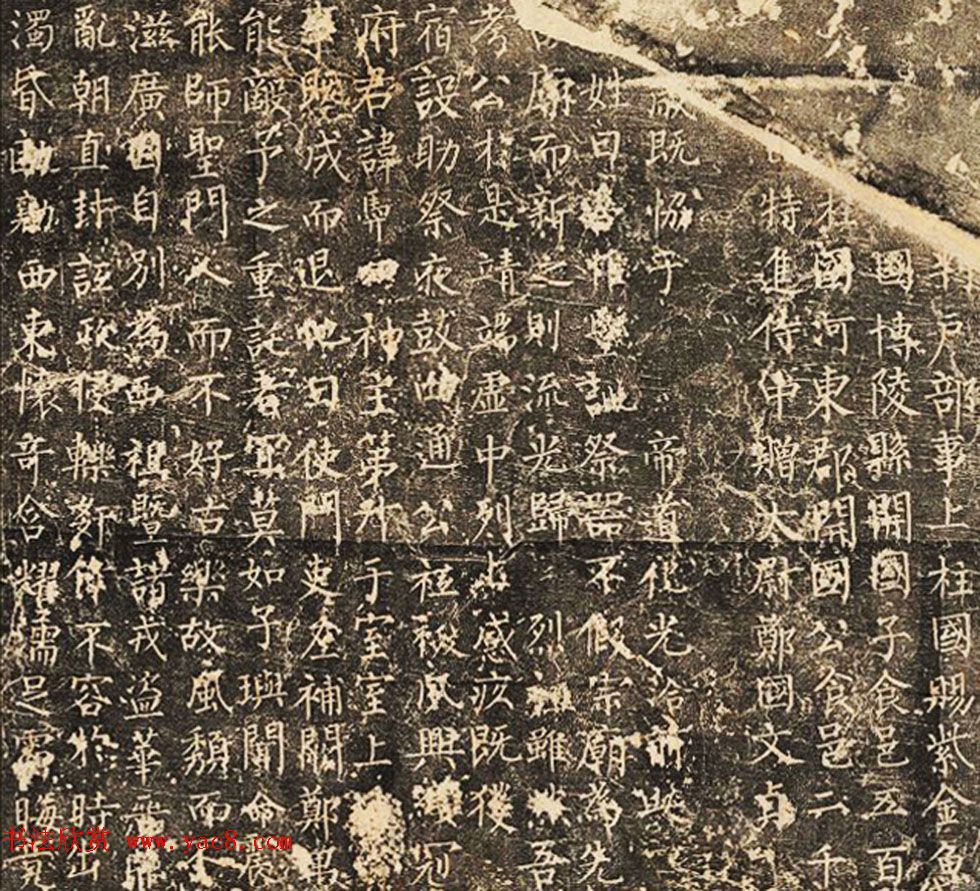 戶部事上柱國賜紫金魚
國博陵縣開國子食邑五百
柱國河東郡開國公食邑二千
特進侍中贈太尉鄭國文貞
歲既協于 帝道化光洽 此
姓曰 惟 誠祭器不假宗廟為先
廟而新之則流光歸 烈祖雖 吾
考公於是靖端虛中列 感疚既獲
宿設助祭夜鼓曲通公祗祓夙興 冠
府君諱 神室第 于室室上
成而退他日使門吏 補闕鄭
能敵予之重託者寡莫如子璵聞命
能師聖門人而不好古樂故風頹而不
滋廣因自別為西祖暨諸戎盜華
亂朝直封 轢 不容於時出
濁昏 西東懷奇含耀濡足 晦
书法欣赏 www.yac8.com